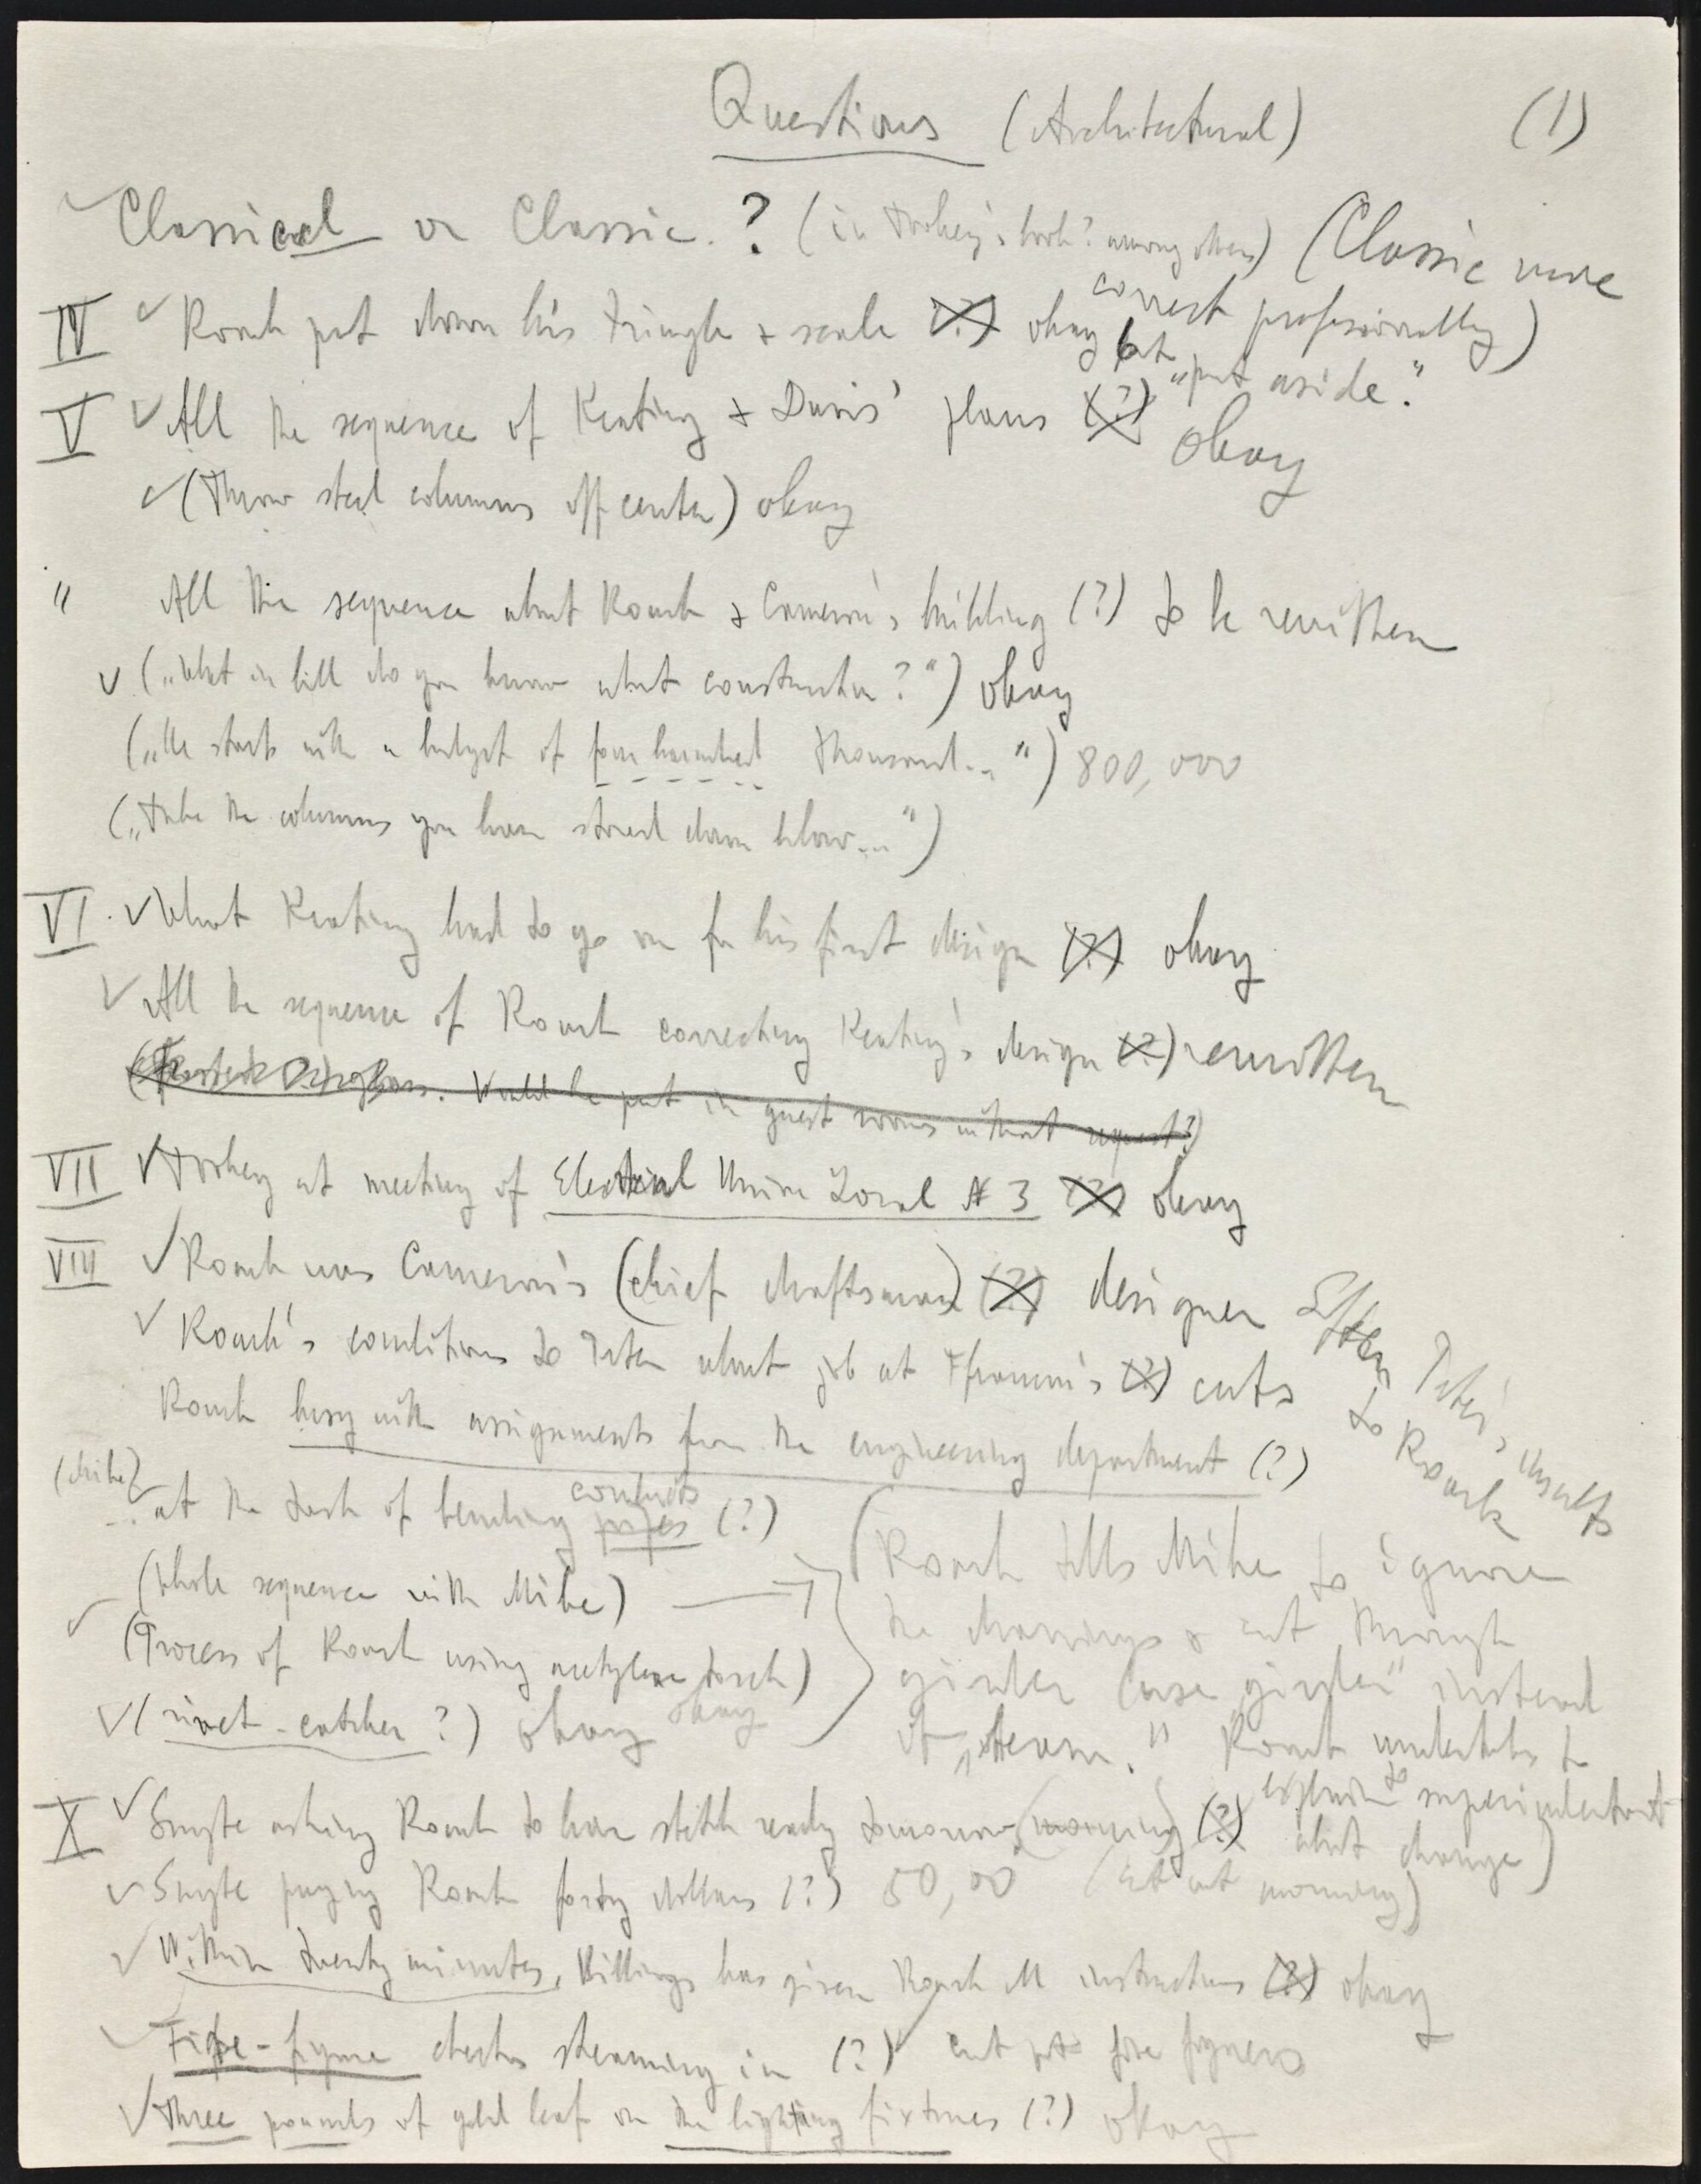 Questions (Architectural) (1)
Classical or Classic.? (in Toohey's book? among others) (Classic more
correct professionally)
IV ✓ Roark put down his triangle & scale (?) okay but "put aside."
V ✓ All the sequence of Keating & Davis' plans (?) okay
✓ (Throw steel columns off center) okay
" All the sequence about Roark & Cameron's building (?) to be rewritten
✓ („What in hell do you know about construction?") okay
(„He starts with a budget of four hundred thousand..") 800,000
(„Take the columns you have stored down below...")
VI ✓ What Keating had to go on for his first design (?) okay
✓ All the sequence of Roark correcting Keating's design (?) rewritten
Would he put in guest rooms without request?)
VII ✓ Toohey at meeting of Electrical Union Local # 3 (?) okay
VIII ✓ Roark was Cameron's (chief draftsman) (?) designer
✓ Roark's conditions to Peter about job at Francon's (?) cuts
Peter's insults
to Roark
Roark busy with assignments from the engineering department (?)
(Mike)
... at the task of bending pipes conduits (?)
(Whole sequence with Mike) →
✓ (Process of Roark using acetylene torch) okay
✓ (rivet-catcher?) okay
(Roark tells Mike to ignore
the drawings & cut through
girder (use „girder" instead
of „beam." Roark undertakes to
explain to superintendent
about change)
X ✓ Snyte asking Roark to have sketch ready tomorrow (morning) (?)
(cut out morning)
✓ Snyte paying Roark forty dollars (?) 50,00
✓ Within twenty minutes, Billings has given Roark all instructions (?) okay
✓ Five-figure checks streaming in (?) cut out five figures
✓ Three pounds of gold leaf on the lighting fixtures (?) okay